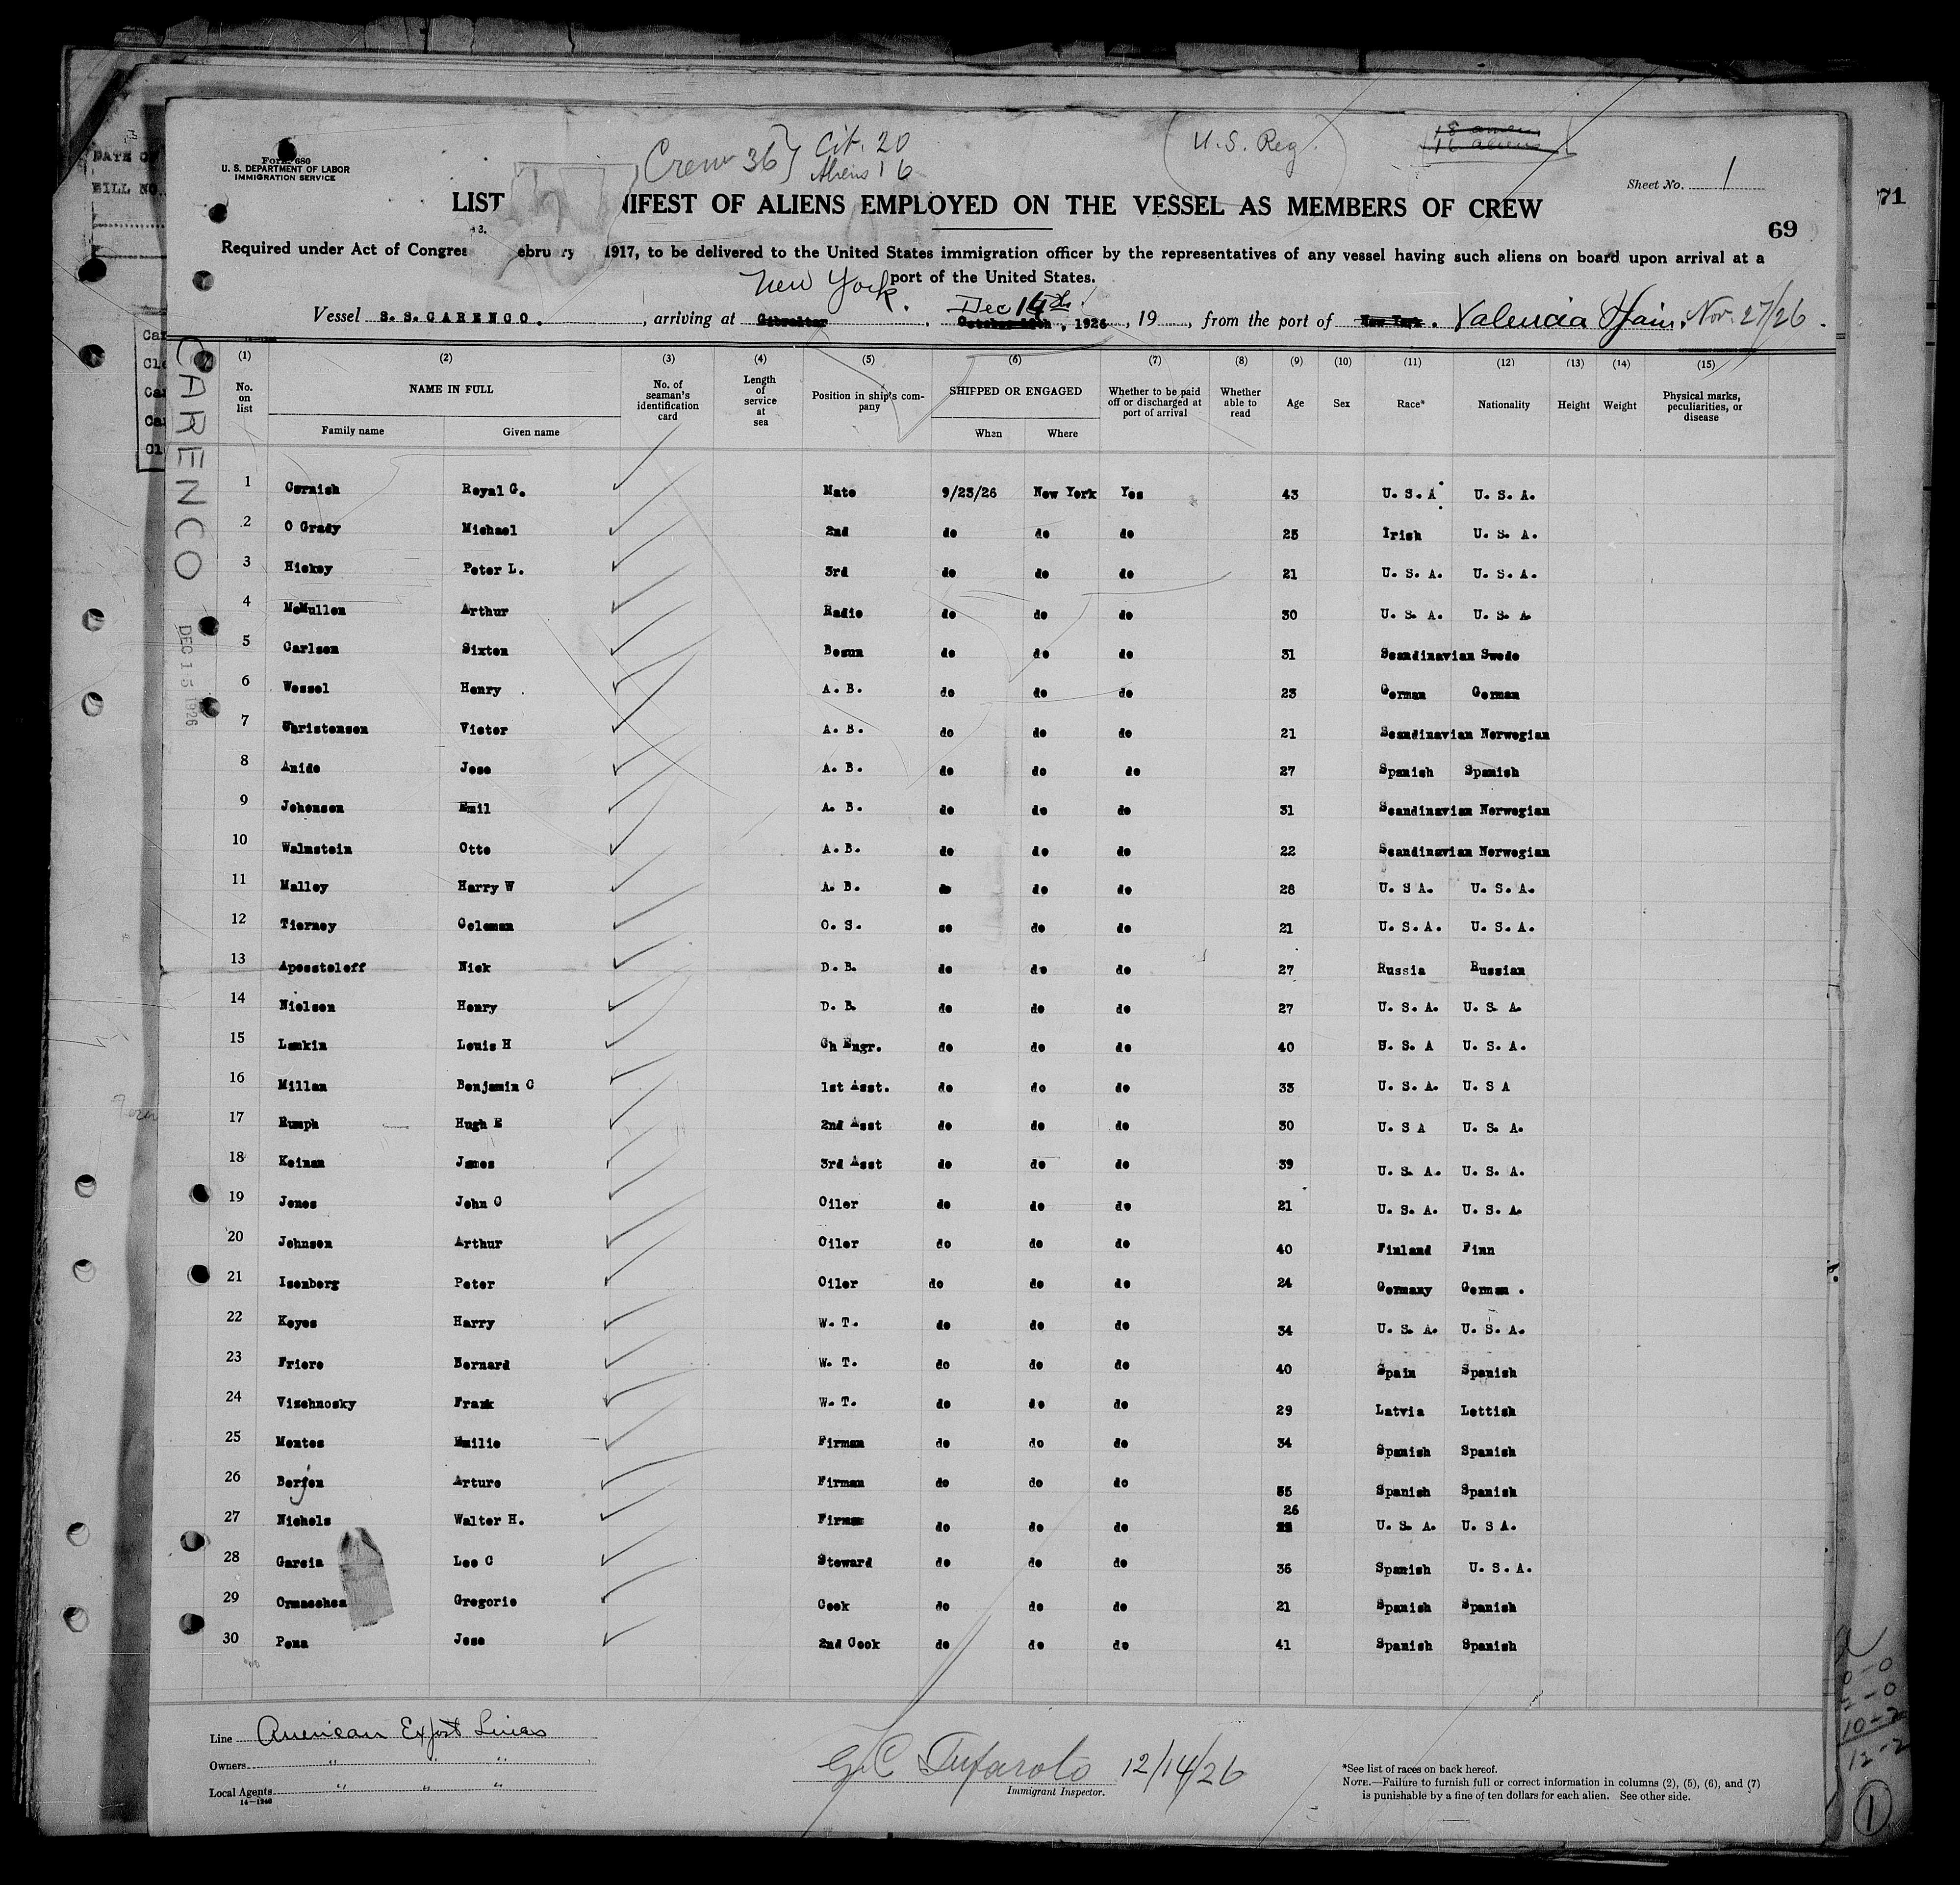 Form 680
U. S. DEPARTMENT OF LABOR
IMMIGRATION SERVICE
Crew 36 } Cit. 20
Aliens 16
(U.S. Reg.)
18 amer
16 aliens
Sheet No. 1
LIST NIFEST OF ALIENS EMPLOYED ON THE VESSEL AS MEMBERS OF CREW
69
71
Required under Act of Congres ebruary 1917, to be delivered to the United States immigration officer by the representatives of any vessel having such aliens on board upon arrival at a
port of the United States.
New York. Dec 14th
Vessel S.S. CARENCO., arriving at Gibraltar, October, 1926, 19, from the port of New York. Valencia Spain. Nov. 27/26.
CARENCO
DEC 15 1926
(1) (2) (3) (4) (5) (6) (7) (8) (9) (10) (11) (12) (13) (14) (15)
No. on list NAME IN FULL Family name Given name No. of seaman's identification card Length of service at sea Position in ship's company SHIPPED OR ENGAGED When Where Whether to be paid off or discharged at port of arrival Whether able to read Age Sex Race* Nationality Height Weight Physical marks, peculiarities, or disease
1 Cornish Royal G. Mate 9/23/26 New York Yes 43 U.S.A U.S.A.
2 O Grady Michael 2nd do do do 25 Irish U.S.A.
3 Hickey Peter L. 3rd do do do 21 U.S.A. U.S.A.
4 McMullen Arthur Radio do do do 30 U.S.A. U.S.A
5 Carlsen Sixten Bosun do do do 31 Scandinavian Swede
6 Wessel Henry A.B. do do do 23 German German
7 Christensen Victor A.B. do do do 21 Scandinavian Norwegian
8 Anido Jose A.B. do do do 27 Spanish Spanish
9 Johensen Emil A.B. do do do 31 Scandinavian Norwegian
10 Walmstein Otto A.B. do do do 22 Scandinavian Norwegian
11 Malley Harry W A.B. do do do 28 U.S A. U.S.A.
12 Tierney Coleman O.S. so do do 21 U.S.A. U.S.A.
13 Aposstoleff Nick D.B. do do do 27 Russia Russian
14 Nielsen Henry D.B. do do do 27 U.S.A. U.S A.
15 Lamkin Louis H Ch Engr. do do do 40 U.S.A U.S.A.
16 Millan Benjamin C 1st Asst. do do do 33 U.S.A. U.S A
17 Rumph Hugh E 2nd Asst do do do 30 U.S A U.S.A.
18 Keinan James 3rd Asst do do do 39 U.S.A. U.S.A.
19 Jones John O Oiler do do do 21 U.S.A. U.S.A.
20 Johnson Arthur Oiler do do do 40 Finland Finn
21 Isenberg Peter Oiler do do do 24 Germany German.
22 Keyes Harry W.T. do do do 34 U.S.A. U.S.A.
23 Friere Bernard W.T. do do do 40 Spain Spanish
24 Vizchnosky Frank W.T. do do do 29 Latvia Lettish
25 Montes Emilio Firman do do do 34 Spanish Spanish
26 Berjen Arturo Firman do do do 35 Spanish Spanish
27 Nichols Walter H. Firman do do do 26 U.S.A. U.S A.
28 Garcia Leo C Steward do do do 36 Spanish U.S.A.
29 Ormaechea Gregorio Cook do do do 21 Spanish Spanish
30 Pena Jose 2nd Cook do do do 41 Spanish Spanish
Line American Export Lines
Owners " " "
Local Agents " " "
14-1240
12/14/26
Immigrant Inspector.
*See list of races on back hereof.
NOTE.—Failure to furnish full or correct information in columns (2), (5), (6), and (7)
is punishable by a fine of ten dollars for each alien. See other side.
10-2
12-2
1